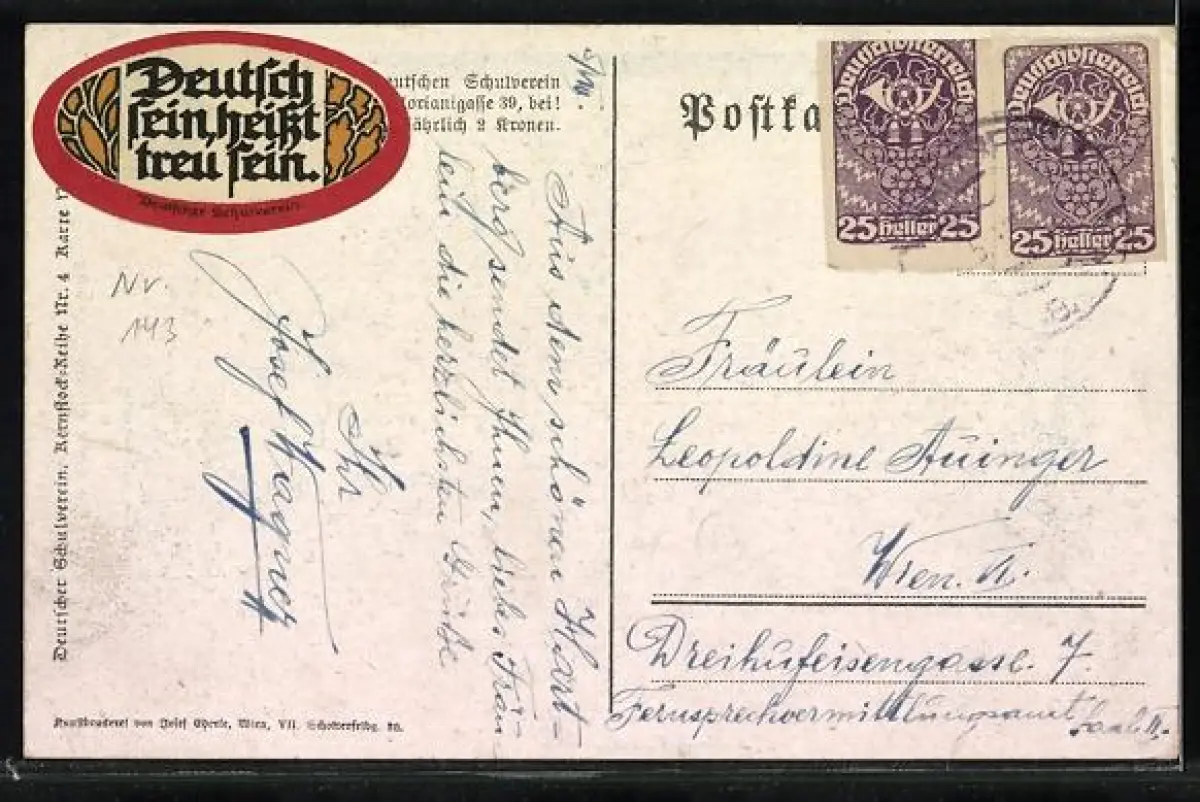 Deutsch
sein, heißt
treu sein.
Deutscher Schulverein.
eutschen Schulverein
lorianigasse 39, bei!
jährlich 2 Kronen.
Deutscher Schulverein, Kernstock-Reihe Nr. 4 Karte
Nr.
143
Aus dem schönen Hart-
berg sendet Ihnen, liebes Fräu-
lein die herzlichsten Grüße
Ihr
Josef Wagner
Kunstdruckerei von Josef Eberle, Wien, VII. Schottenfeldg. 38.
Postka
Deutschösterreich
25 Heller 25
Deutschösterreich
25 Heller 25
Fräulein
Leopoldine Auinger
Wien.
Dreihufeisengasse 7.
Fernsprechvermittlungsamt Saal II.